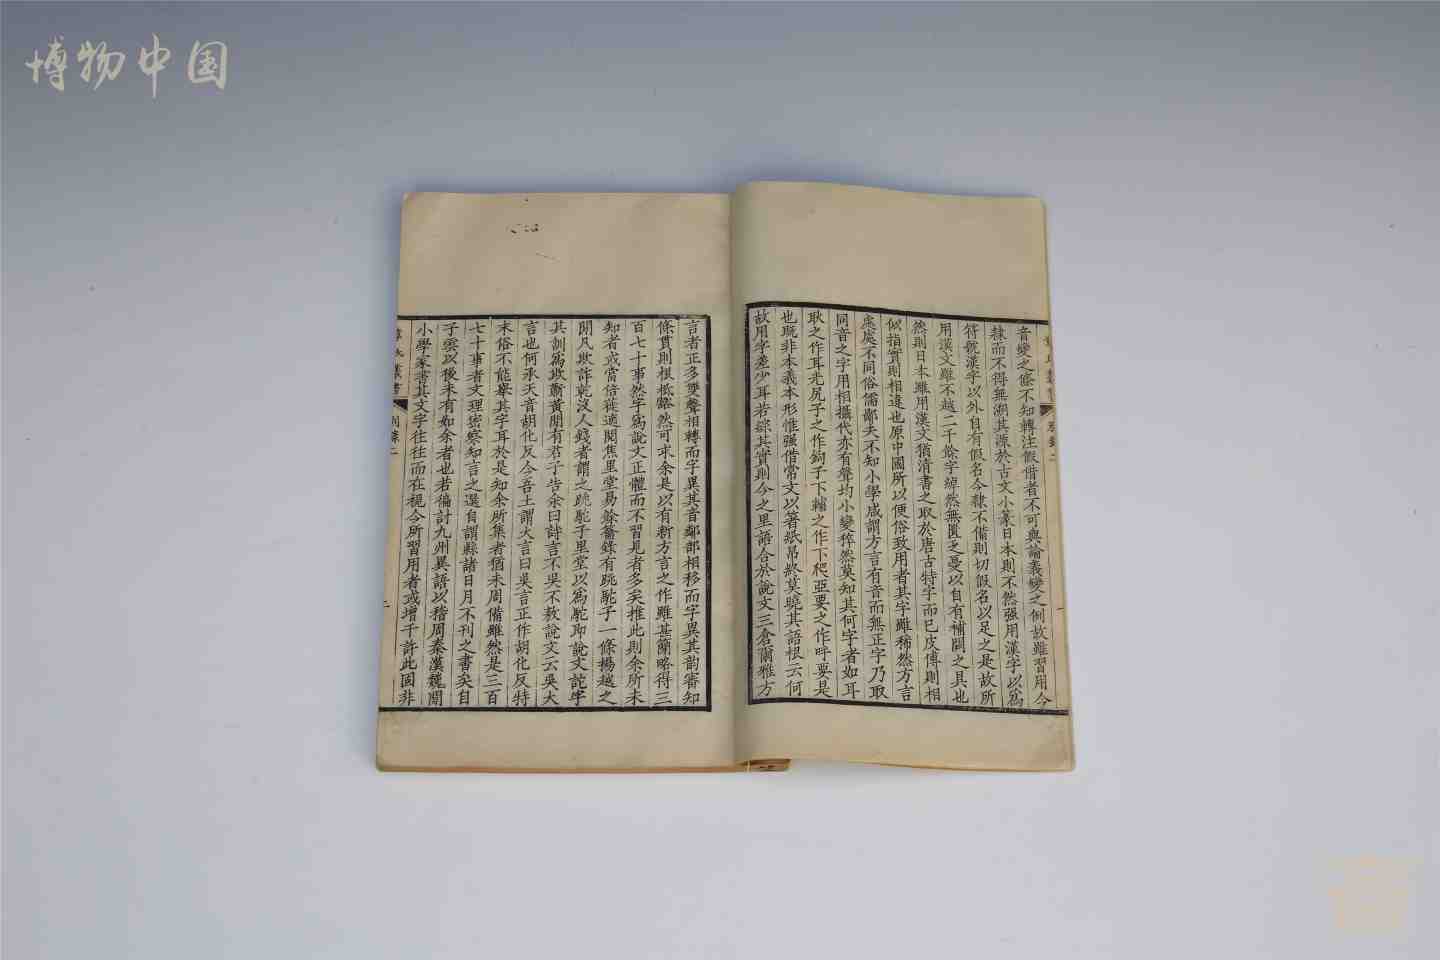 博物中国
章氏叢書
別錄二
音變之條不知轉注假借者不可與論義變之例故雖習用今
隸而不得無溯其源於古文小篆日本則不然强用漢字以爲
符號漢字以外自有假名今隸不備則切假名以足之是故所
用漢文雖不越二千餘字綽然無匱乏之憂以自有補闕之具也
然則日本雖用漢文猶清書之取於唐古特字而已皮傅則相
似指實則相違也原中國所以便俗致用者其字雖稀然方言
處處不同俗儒鄙夫不知小學咸謂方言有音而無正字乃取
同音之字用相攝代亦有聲均小變猝然莫知其何字者如耳
耿之作耳光尻子之作鉤子下輔之作下爬亞要之作呼要是
也既非本義本形惟强借常文以箸紙帛終莫曉其語根云何
故用字差少耳若綜其實則今之里語合於說文三倉爾雅方
言者正多雙聲相轉而字異其音鄰部相移而字異其韵審知
條貫則根柢豁然可求余是以有新方言之作雖甚簡略得三
百七十事然字爲說文正體而不習見者多矣推此則余所未
知者或當倍蓰適閱焦里堂易餘籥錄有跳駝子一條揚越之
閒凡欺詐乾沒人錢者謂之跳駝子里堂以爲駝即說文詑字
其訓爲欺蕭黃閒有君子告余曰詩言不吳不敖說文云吳大
言也何承天音胡化反今吾土謂大言曰吳言正作胡化反特
末俗不能舉其字耳於是知余所集者猶未周備雖然是三百
七十事者文理密察知言之選自謂縣諸日月不刊之書矣自
子雲以後未有如余者也若徧討九州異語以稽周秦漢魏閒
小學家書其文字往往而在視今所習用者或增千許此固非
章氏叢書
別錄二
二